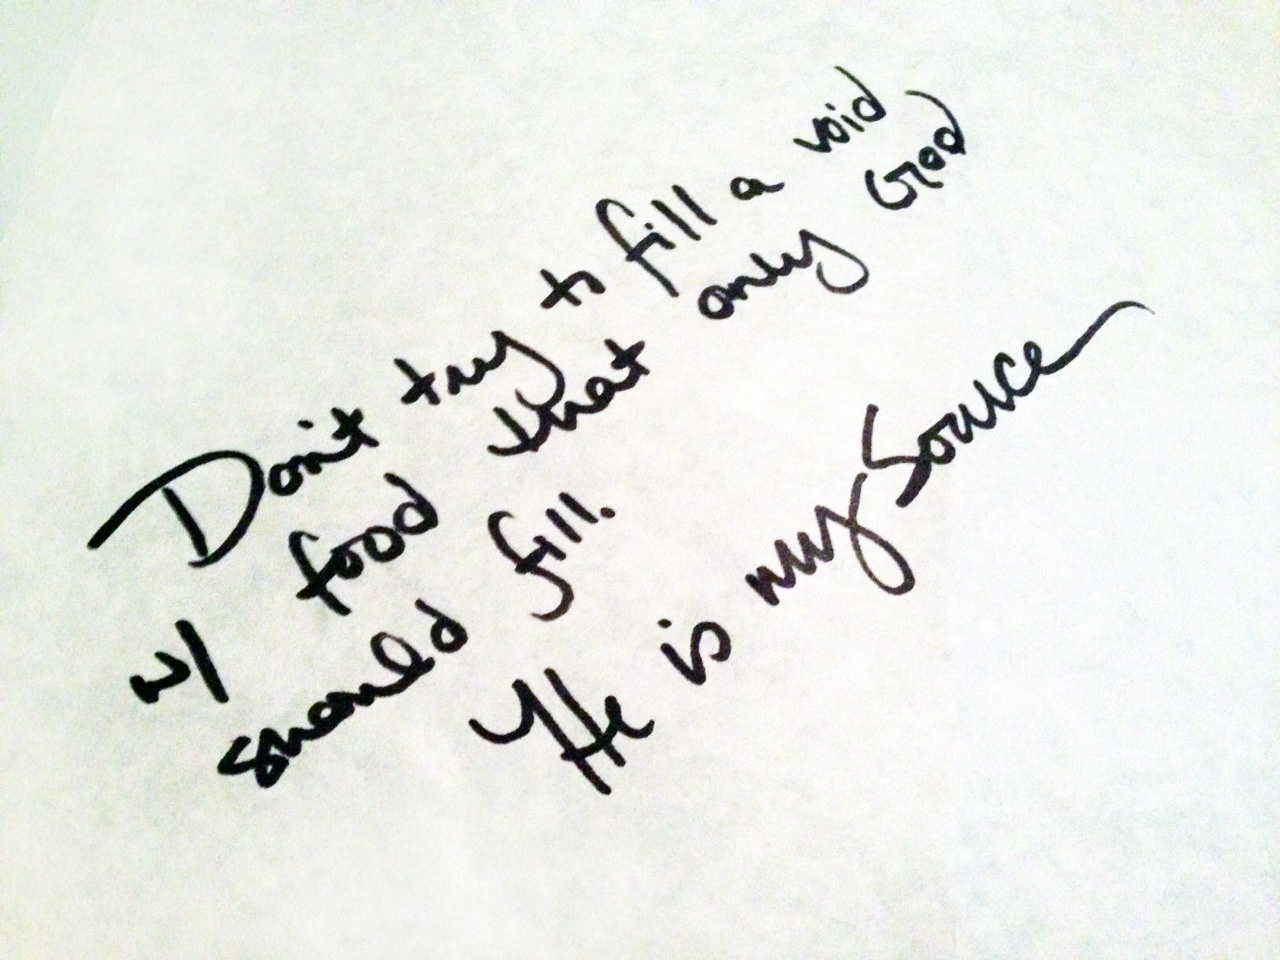 Don't try to fill a void
w/ food that only God
should fill.
He is my Source